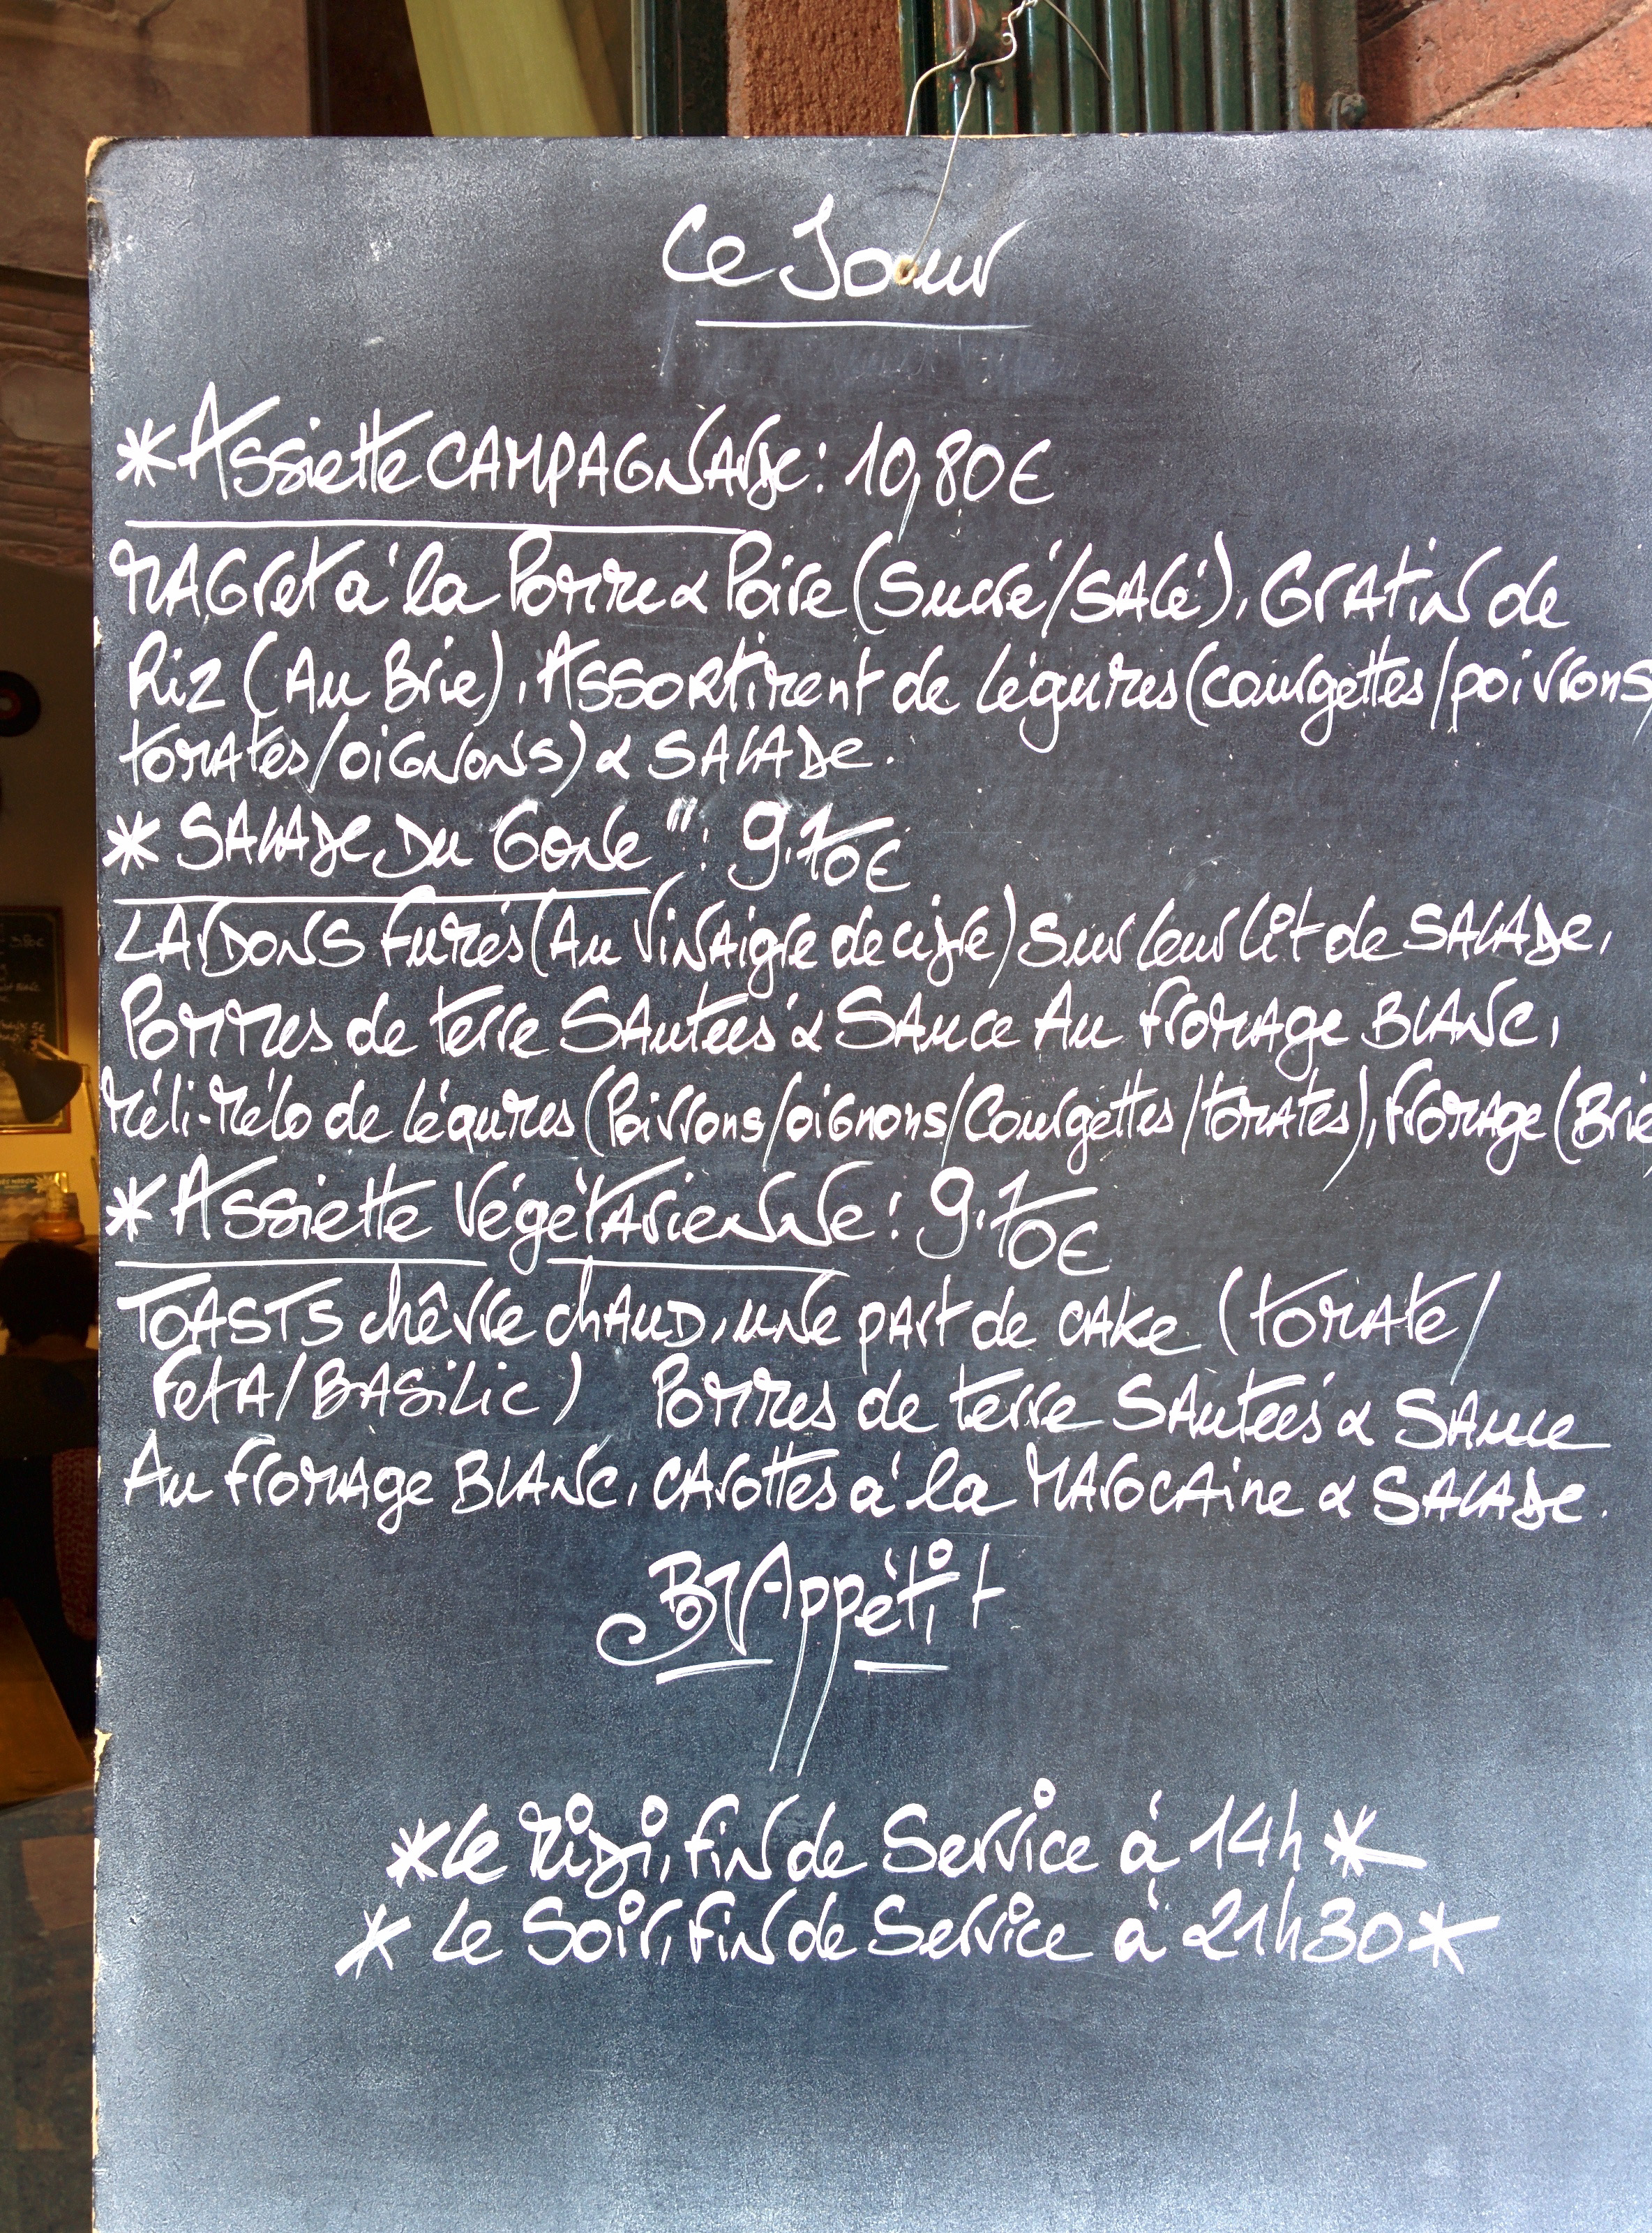 Ce Jour
*Assiette CAMPAGNARDe: 10,80€
MAGret à la Pomme & Poire (Sucré/SAlé), GrAtin de
Riz (Au Brie), Assortiment de légumes (courgettes/poivrons/
tomAtes/oiGNoNs) & SALADe.
* SALADe Du Gone ": 9,70€
LArDoNS fumés (Au ViNAigre de cidre) Sur leur lit de SALADe,
Pommes de terre SAutées & SAuce Au fromAge BLANc,
Méli-Mélo de légumes (Poivrons/oignons/Courgettes/tomAtes), fromAge (Brie
*Assiette végétArieNNe: 9,70€
TOASTS chêvre chAuD, uNe pArt de cAke (tomAte/
FetA/BASilic) Pommes de terre SAutées & SAuce
Au fromAge BLANc, cArottes à la MArocAine & SALADe.
Bon Appétit
*Le Midi, fiN de Service à 14h*
* Le Soir, fiN de Service à 21h30*